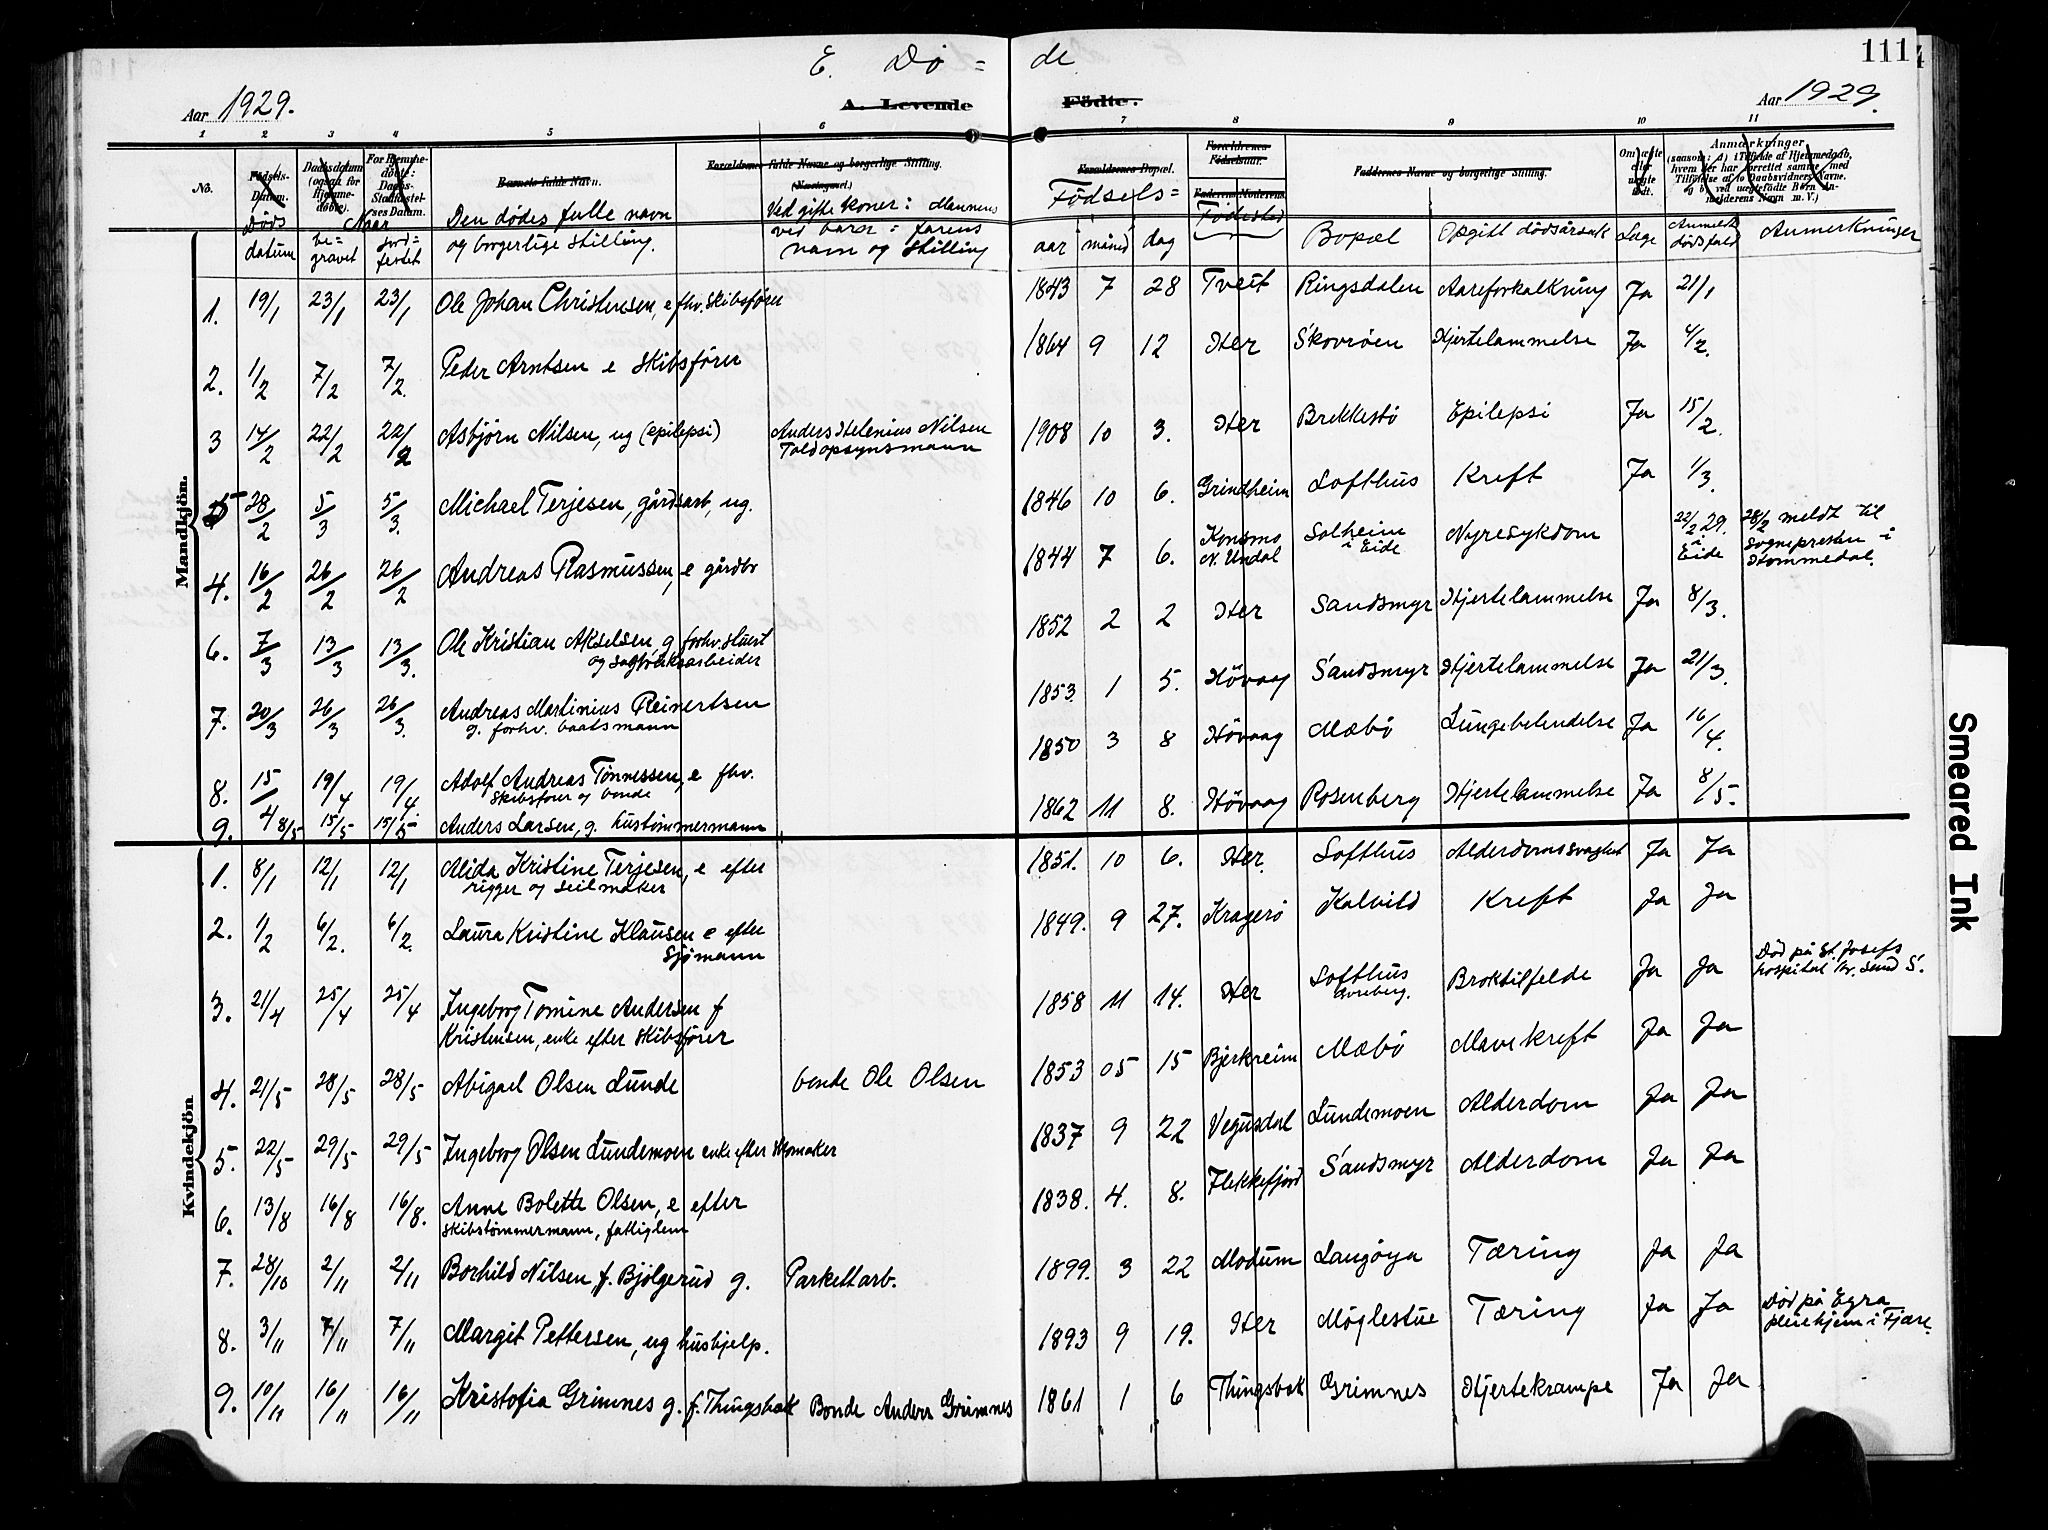 E. Dø = de
111
Aar 1929.
A. Levende Födte.
Aar 1929.
1 2 3 4 5 6 7 8 9 10 11
No.
Födsels-Datum.
Daabsdatum (ogsaa for Hjemmedøbte).
For Hjemmedøbte: Daabs Stadfæstelses Datum.
Barnets fulde Navn.
Forældrenes fulde Navne og borgerlige Stilling.
Forældrenes Bopæl.
Forældrenes Födselsaar.
Faderens Moderens
Faddernes Navne og borgerlige Stilling.
Om ægte eller uægte født.
Anmærkninger
Døds datum
Naar
be= gravet
jord= festet
Den dødes fulle navn og borgerlige stilling.
Ved gifte koner: Mannens
ved barn: farens
navn og stilling
Födsels=
aar måned dag
Fødested
Bopæl
Opgitt dødsårsak
Læge
Anmeldt dødsfald
Anmerkninger
Mandkjön.
1. 19/1 23/1 23/1 Ole Johan Christensen, e fhv. skibsfører 1843 7 28 Tveit Ringsdalen Aareforkalkning Ja 21/1
2. 1/2 7/2 7/2. Peder Arntsen e skibsfører 1864 9 12 Her Skovrøen Hjertelammelse Ja 4/2.
3 14/2 22/2 22/2 Asbjørn Nilsen, ug (epilepsi) Anders Helenius Nilsen Toldopsynsmann 1908 10 3. Her Brekkestø Epilepsi Ja 15/2.
5 28/2 5/3 5/3. Michael Terjesen, gårdsarb, ug. 1846 10 6. Grindheim Lofthus Kreft Ja 1/3.
4. 16/2 26/2 26/2 Andreas Rasmussen, e gårdbr 1844 7 6. Konsmo N. Undal Solheim i Eide Nyresykdom 22/2 29. i Eide 28/2 meldt til Sognepresten i Hommedal.
6. 7/3 13/3 13/3. Ole Kristian Akselsen, g forhv. stuert og sagbruksarbeider 1852 2 2 Her Sandsmyr Hjertelammelse Ja 8/3.
7. 20/3 26/3 26/3. Andreas Martinius Reinertsen g. forhv. baatsmann 1853. 1 5. Høvaag Sandsmyr Hjertelammelse Ja 21/3.
8. 15/4 19/4 19/4. Adolf Andreas Tønnessen, e fhv. skibsfører og bonde 1850 3 8 Høvaag Mæbø Lungebetendelse Ja 16/4.
9. 8/5 15/5 15/5 Anders Larsen, g. hustømmermann 1862 11 8. Høvaag Rosenberg Hjertelammelse Ja 8/5.
Kvindekjön
1. 8/1 12/1 12/1 Alida Kristine Terjesen, e efter rigger og seilmaker 1851. 10 6. Her. Lofthus Alderdomssvaghet Ja Ja
2. 1/2 6/2. 6/2. Laura Kristine Klausen e efter Sjømann 1849. 9 27. Kragerø Kalvild Kreft Ja Ja
3. 21/4 25/4 25/4 Ingeborg Tomine Andersen f Kristensen, enke efter skibsfører 1858 11 14. Her Lofthus Broktilfelde Ja Ja Død på St. Josefs hospital kr. sund S.
4. 21/5 28/5 28/5 Abigael Olsen Lunde bonde Ole Olsen 1853 05 15 Bjerkreim Mæbø Mavekreft Ja Ja
5. 22/5 29/5 29/5 Ingeborg Olsen Lundemoen enke efter skomaker 1837 9 22 Vegusdal Lundemoen Alderdom Ja Ja
6. 13/8 16/8 16/8. Anne Bolette Olsen, e efter skibstømmermann, fattiglem 1838. 4. 8. Flekkefjord Sandsmyr Alderdom Ja Ja
7. 28/10 2/11 2/11 Borhild Nilsen f. Bjølgerud g. Parkettarb. 1899. 3 22 Modum Langøya Tæring Ja Ja
8. 3/11 7/11 7/11 Margit Pettersen, ug hushjelp. 1893 9 19. Her Møglestue Tæring Ja Ja Død på Egra pleiehjem i Fjære.
9. 10/11 16/11 16/11 Kristofia Grimnes g. f. Thingsbak Bonde Anders Grimnes 1861 1 6 Thingsbak Grimnes Hjertekrampe Ja Ja
Smeared Ink